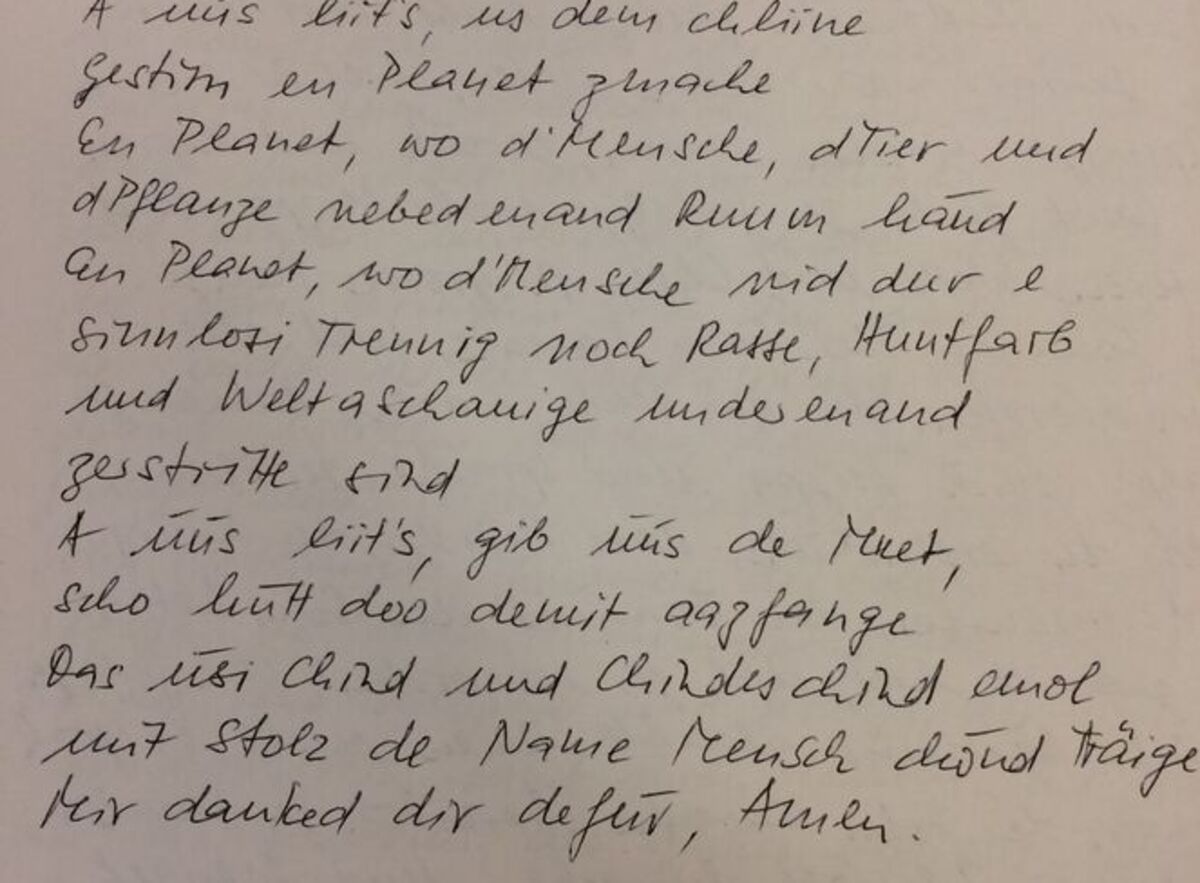 A üüs liit's, us dem chliine
Gestirn en Planet zmache
En Planet, wo d'Mensche, dTier und
dPflanze nebedenand Ruum händ
En Planet, wo d'Mensche nid dur e
sinnlosi Trennig noch Rasse, Huutfarb
und Weltaschauige underenand
zerstritte sind
A üüs liit's, gib üüs de Muet,
scho hütt doo demit aazfange
Das üsi Chind und Chindeschind emol
mit Stolz de Name Mensch chönd träige
Mir danked dir defür, Amen.